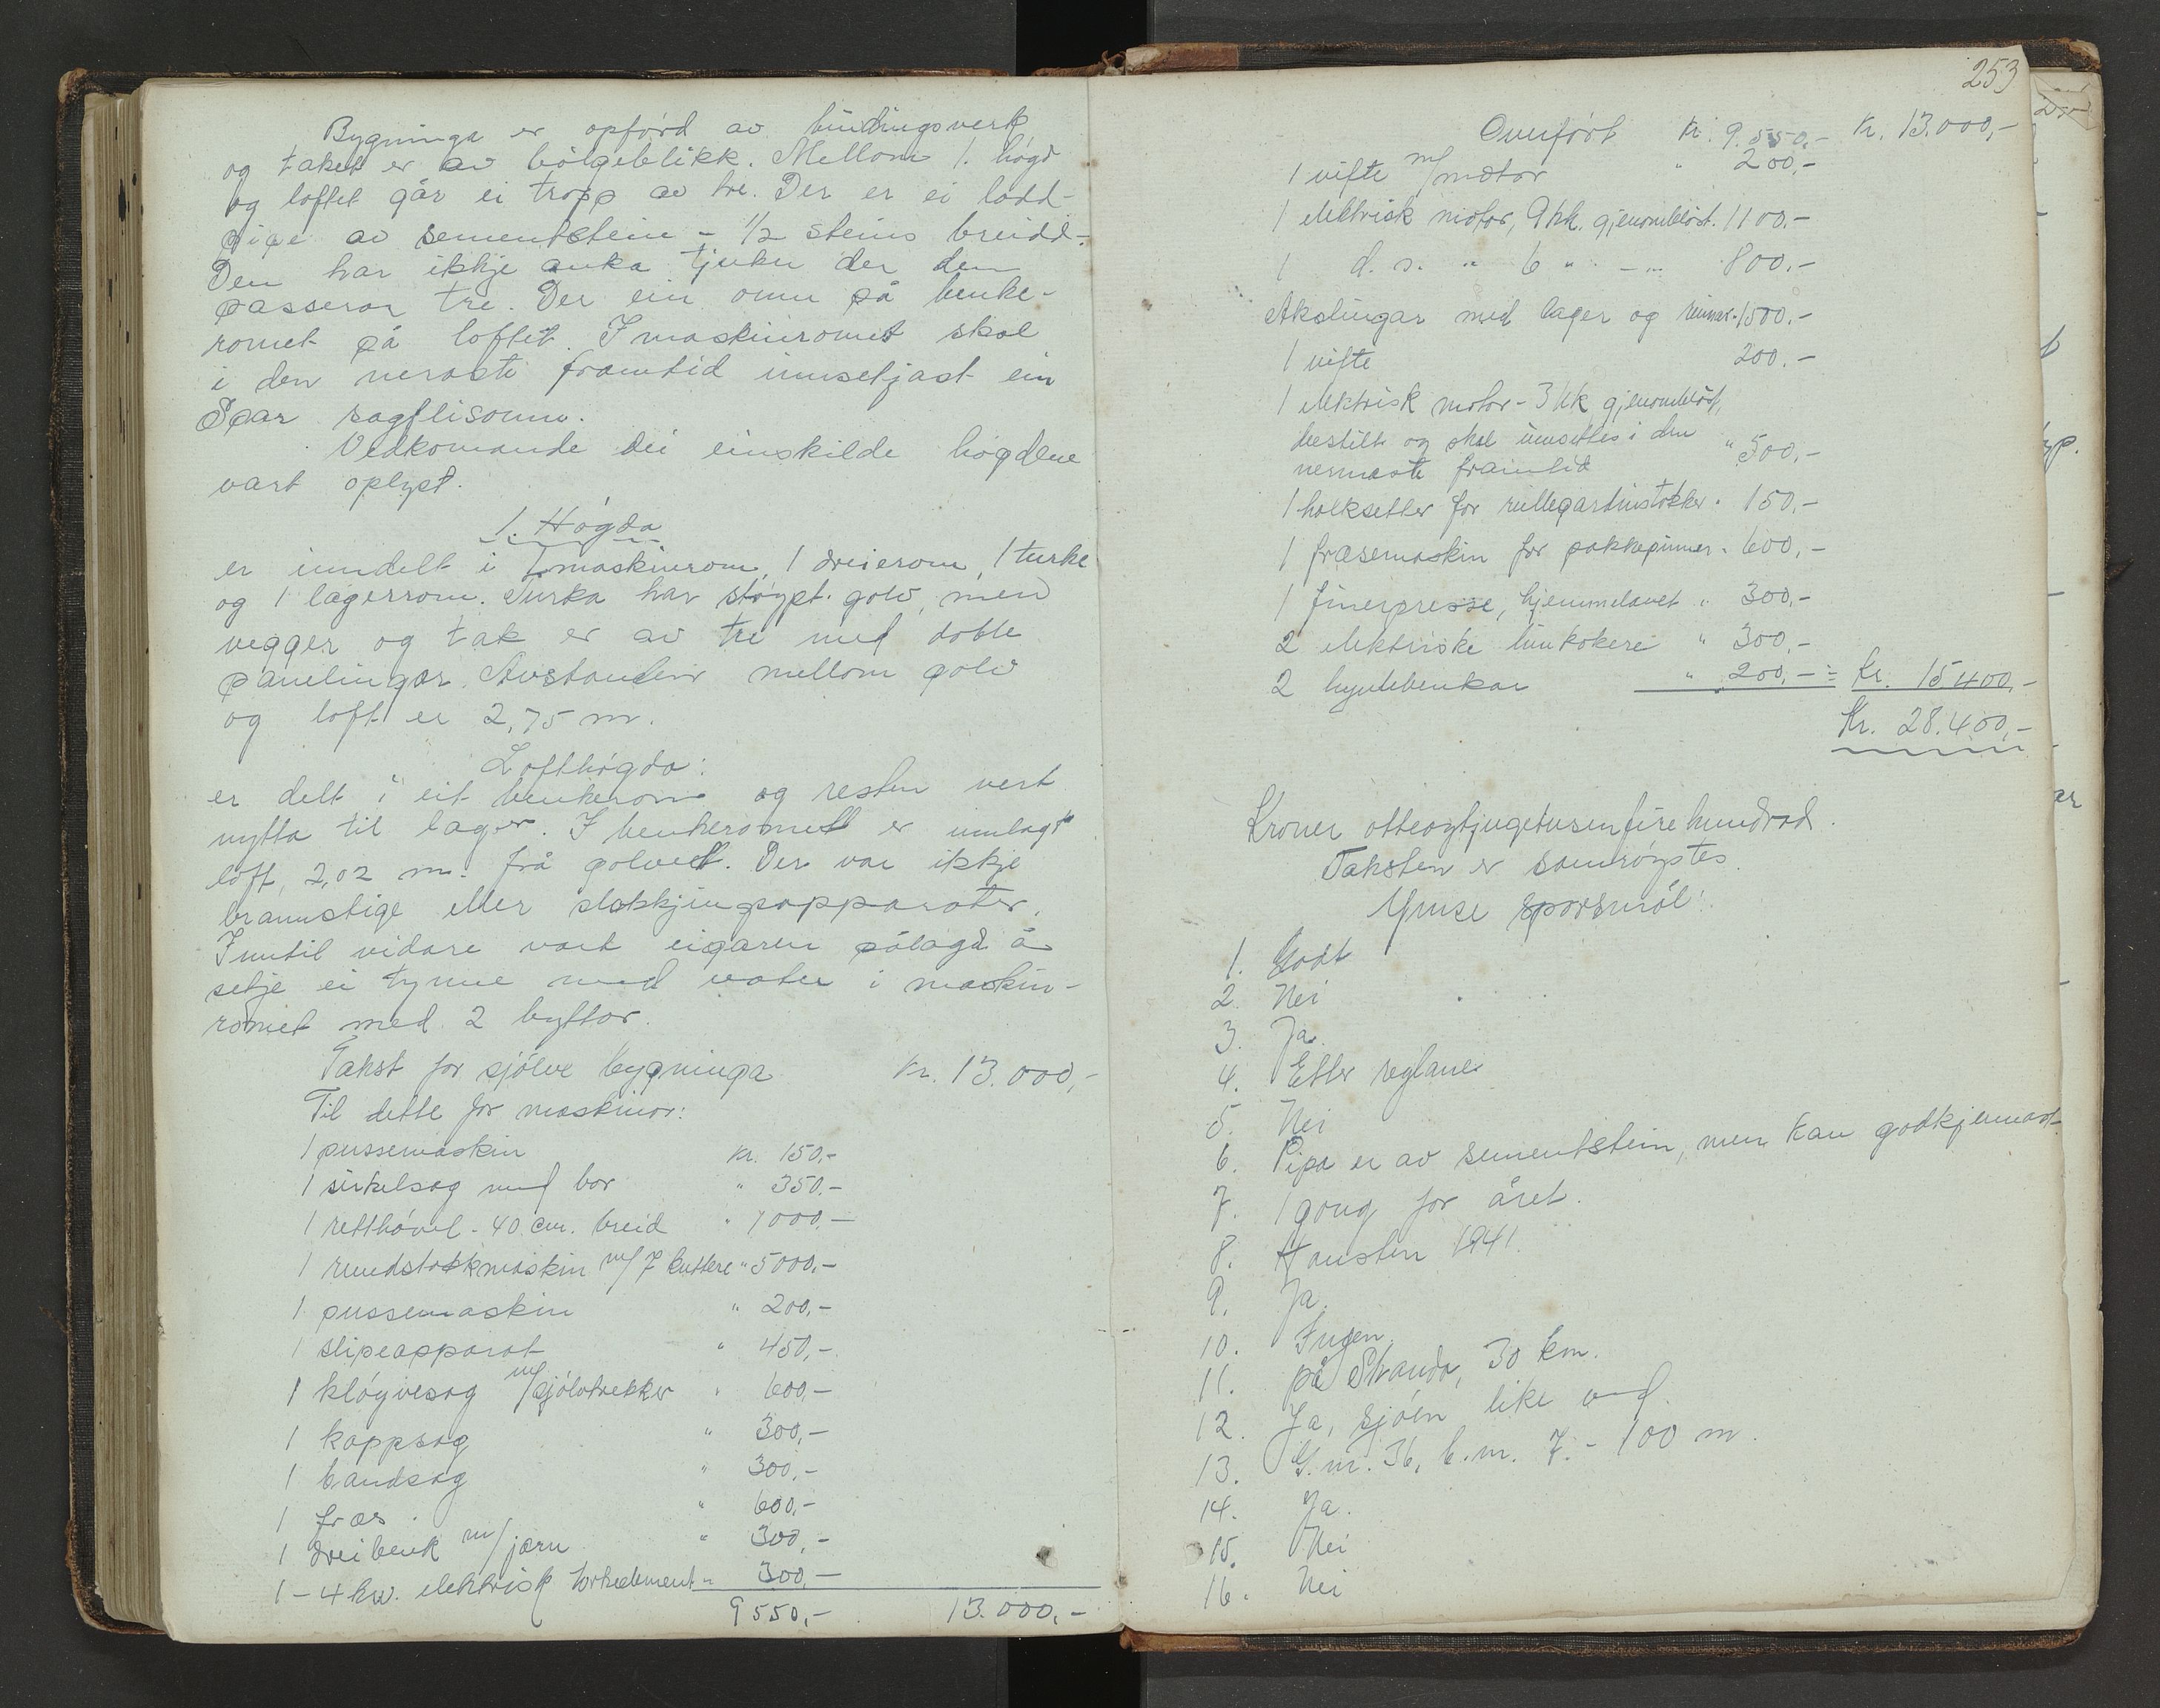 Bygninga er opførd av bindingsverk
og taket er av bølgeblikk. Mellom 1. høgd
og loftet går ei tropp av tre. Der er ei ladd-
pipe av sementstein - 1/2 steins breidd-
Den har ikkje auka tjukn der den
passerar tre. Der ein omn på benke-
romet på loftet. I maskinromet skal
i den nerasti framtid innsetjast ein
Spar sagflisomn.
Vedkomande dei einskilde høgdene
vart oplyst.
1. Høgda
er inndelt i 1 maskinrom, 1 dreierom, 1 turke
og 1 lagerrom. Turka har støypt golv, men
vegger og tak er av tre med doble
panelingar. Avstanden mellom golv
og loft er 2,75 m.
Lofthøgda:
er delt i eit benkerom og resten vert
nytta til lager. I benkeromet er innlagt
loft, 2,02 m. frå golvet. Der var ikkje
brannstige eller sløkkjingsapparater.
Inntil vidare vart eigaren pålagd å
setje ei tynne med vatn i maskin-
romet med 2 byttor.
Takst for sjølve bygninga Kr. 13.000,-
Til dette for maskinor:
1 pussemaskin Kr. 150,-
1 sirkelsag med bor " 350,-
1 retthøvel - 40 cm. breid " 1000,-
1 rundstokkmaskin m/ 7 kuttere " 5000,-
1 pussemaskin " 200,-
1 slipeapparat " 450,-
1 kløyvesag m/ sjølvtrekker " 600,-
1 kappsag " 300,-
1 bandsag " 300,-
1 fræs " 600,-
1 dreibenk m/ jarn " 300,-
1 - 4 kw. elektrisk tørkeelement " 300,-
9550,- 13.000,-
253
Overført Kr. 9.550,- Kr. 13.000,-
1 vifte m/motor " 200,-
1 elektrisk motor, 9 hk. gjenombløst. 1100,-
1 d. o. " 6 " - " - 800,-
Akslingar med lager og reimar " 1500,-
1 vifte 200,-
1 elektrisk motor - 3 hk gjenombløst,
bestilt og skal innsettes i den " 500,-
nermaste framtid
1 holksetter for rullegardinstokker " 150,-
1 fræsemaskin for pakkepinner " 600,-
1 finerpresse, hjemmelavet " 300,-
2 elektriske limkokere " 300,-
2 hyvlebenkar " 200,- = Kr. 15400,-
Kr. 28.400,-
Kroner otteogtjugetusenfirehundrad.
Taksten er samrøystes.
Ymse spørsmål:
1. Godt
2. Nei
3. Ja.
4. Etter reglane
5. Nei
6. Pipa er av sementstein, men kan godkjennast
7. 1 gong for året.
8. Hausten 1941.
9. Ja.
10. Ingen.
11. på Stranda, 30 km.
12. Ja, sjøen like ved.
13. G.nr. 36, b.nr. 7. - 100 m.
14. Ja.
15. Nei
16. Nei